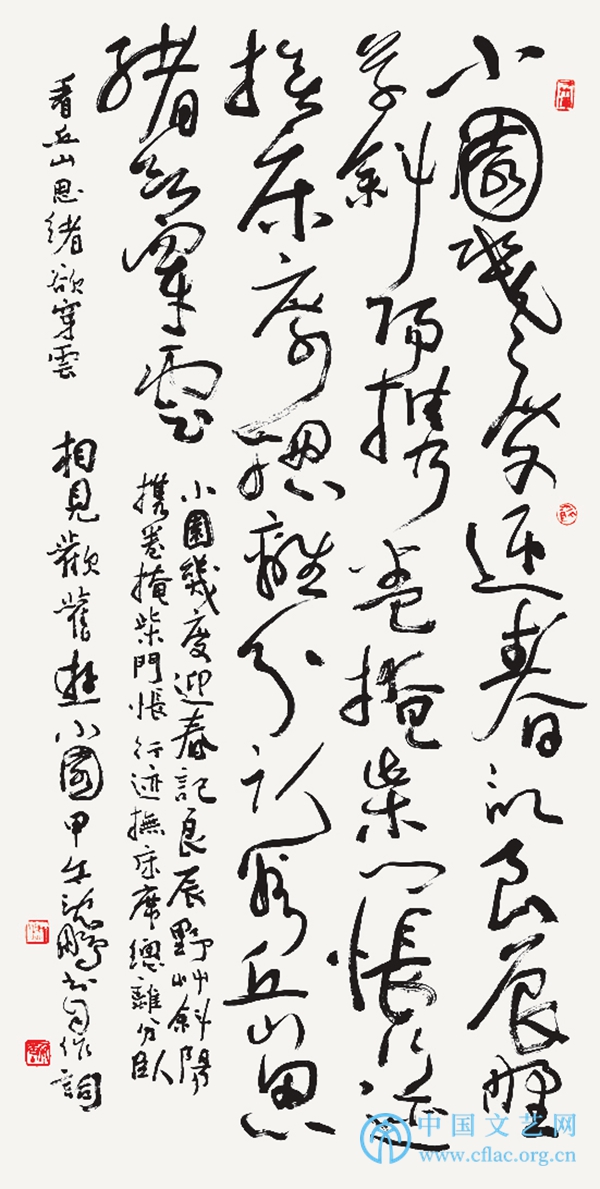 小園幾度迎春記良辰野
草斜陽攜卷掩柴門悵行迹
撫床席總離分臥看丘山思
緒欲穿雲
小園幾度迎春記良辰野艸斜陽
攜卷掩柴門悵行迹撫床席總離分臥
看丘山思緒欲穿雲
相見歡舊遊小園甲午沈鵬書自作詞
中国文艺网
www.cflac.org.cn